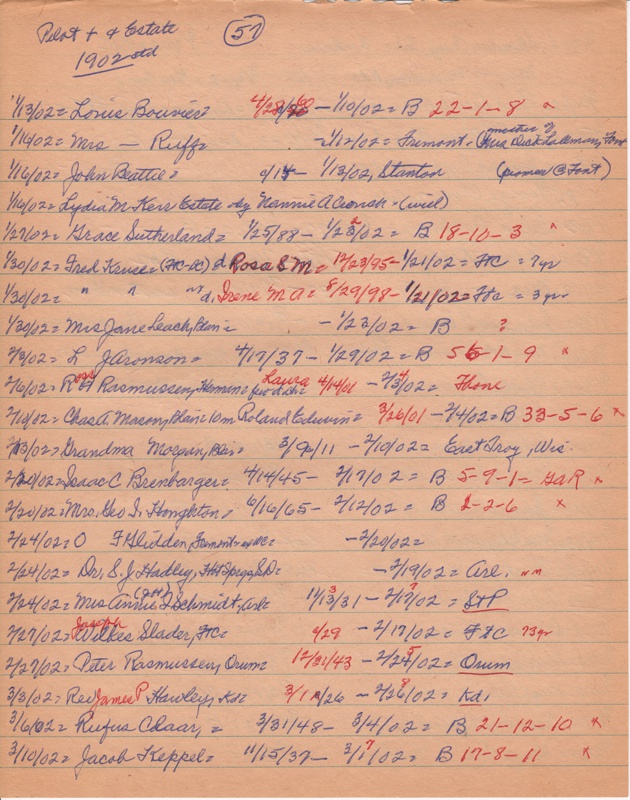 Pilot + & Estate
57
1902 std
1/13/02= Louis Bouvier= 4/28/ - 1/10/02= B 22-1-8 x
1/14/02= Mrs — Ruff= - 1/12/02= Fremont - mother of Mrs Dick Lalleman, Font
1/16/02= John Beattie= - 1/13/02, Stanton (pioneer @ Font)
1/16/02= Lydia M Kerr Estate by Nannie A (will)
1/27/02= Grace Sutherland= 1/25/88 - 1/22/02= B 18-10-3 x
1/30/02= Fred Kruse= (FtC-DC) d Rosa S M= 12/23/95 - 1/21/02= FtC = 7 yr
1/30/02= " " " d, Irene M A= 8/29/98 - 1/21/02= Ftc = 3 yr
1/30/02= Mrs Jane Leach, Blair= - 1/23/02= B ?
2/3/02= L J Aronson= 4/17/37 - 1/29/02= B 56-1-9 x
2/6/02= R Rasmussen, Herman= Laura 4/14/01 - 2/4/02= Fhone
2/10/02= Chas A. Mason, Blair= 10m Roland Edwin= 3/26/01 - 2/4/02= B 33-5-6 x
2/13/02= Grandma Morgan, Blair= 3/9/11 - 2/10/02= East Troy, Wis
2/20/02= Isaac C Brenbarger= 4/14/45 - 2/17/02= B 5-9-1= GaR x
2/20/02= Mrs. Geo I. Houghton= 6/16/65 - 2/12/02= B 2-2-6 x
2/24/02= O F Glidden, Fremont= - 2/20/02=
2/24/02= Dr. S. J. Hadley, Hot Sprgs, S.D= - 2/19/02= Arl. nm
2/24/02= Mrs Annie (JH) Schmidt, Arl= 11/3/31 - 2/17/02= StP
2/27/02= Joseph Wilkes Slader, FtC= 4/29 - 2/17/02= FtC 73 yr
2/27/02= Peter Rasmussen, Orum= 12/31/43 - 2/25/02= Orum
3/3/02= Rev James P Hawley, Kd= 3/1/26 - 2/28/02= Kd1
3/6/02= Rufus Claar, = 3/31/48 - 3/4/02= B 21-12-10 x
3/10/02= Jacob Keppel= 11/15/37 - 3/7/02= B 17-8-11 x